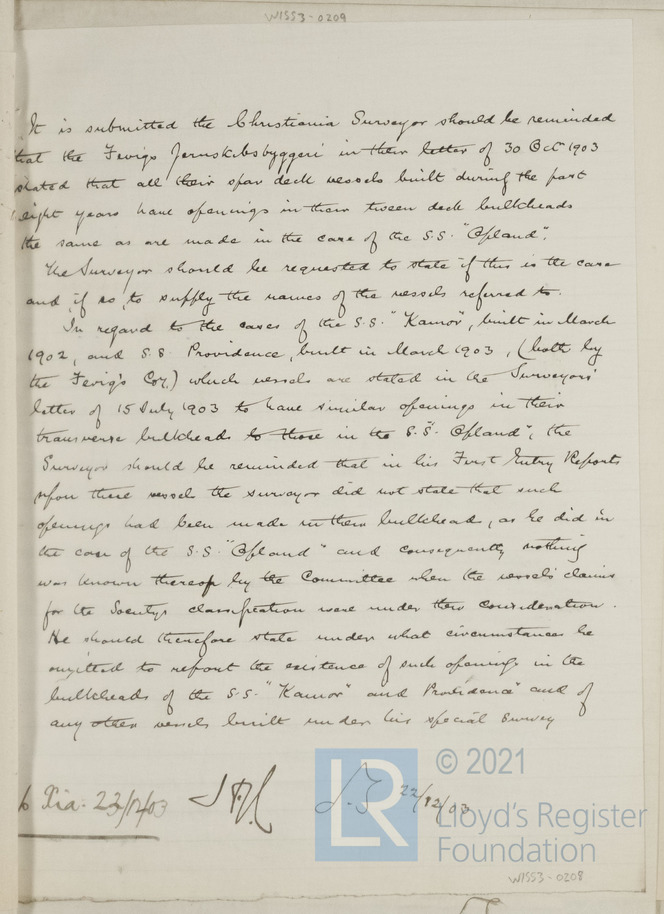 W1553-0209
It is submitted the Christiania Surveyor should be reminded
that the Fevigs Jernskibsbyggeri in their letter of 30 Oct 1903
stated that all their spar deck vessels built during the past
eight years have openings in their tween deck bulkheads
the same as are made in the case of the S.S. "Ofland".
The Surveyor should be requested to state if this is the case
and, if so, to supply the names of the vessels referred to.
In regard to the cases of the S.S. "Kamor", built in March
1902, and S.S. Providence, built in March 1903, (both by
the Fevig's Coy,) which vessels are stated in the Surveyors'
letter of 15 July 1903 to have similar openings in their
transverse bulkheads to those in the S.S. "Ofland", the
Surveyor should be reminded that in his First Entry Reports
upon these vessels the surveyor did not state that such
openings had been made in their bulkheads, as he did in
the case of the S.S. "Ofland" and consequently nothing
was known thereof by the Committee when the vessels' claims
for the Society's classification were under their consideration.
He should therefore state under what circumstances he
omitted to report the existence of such openings in the
bulkheads of the S.S. "Kamor" and Providence" and of
any other vessels built under his special survey
Xia: 23/12/03
22/12/03
LR
© 2021
Lloyd's Register
Foundation
W1553-0208